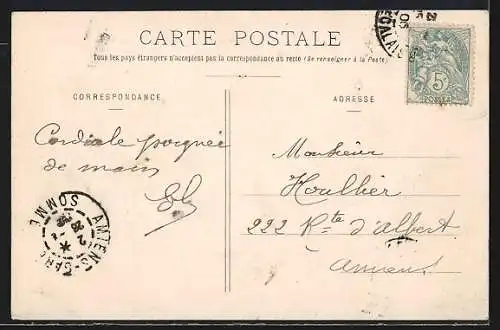 CARTE POSTALE
Tous les pays étrangers n'acceptent pas la correspondance au recto (Se renseigner à la Poste)
CORRESPONDANCE
ADRESSE
Cordiale poignée
de main
Monsieur
Houllier
222 Rte d'Albert
Amiens
5
AMIENS-GARE
SOMME